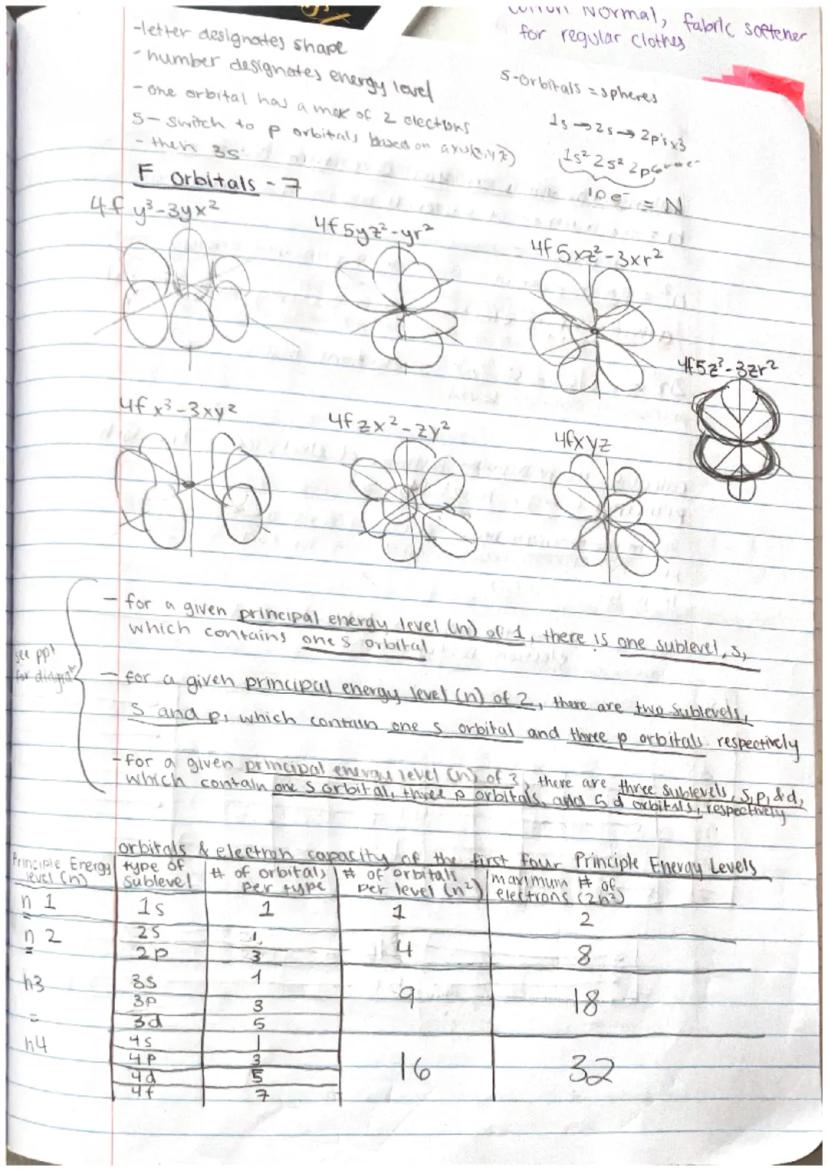 Normal, fabric softener
for regular clothes
-letter designates shape
-number designates energy level
-one orbital has a max of 2 electrons
S- switch to p orbitals based on axis(x,y,z)
-then 3s
S-orbitals = spheres
1s → 2s → 2p's x3
1s² 2s² 2p6
10 e⁻ = N
F orbitals - 7
4f y³-3yx²
4f 5yz²-yr²
4f 5xz²-3xr²
4f 5z³-3zr²
4f x³-3xy²
4f zx²-zy²
4fxyz
see ppt
for diagram
- for a given principal energy level (n) of 1, there is one sublevel, s,
which contains one s orbital
- for a given principal energy level (n) of 2, there are two sublevels,
s and p, which contain one s orbital and three p orbitals respectively
- for a given principal energy level (n) of 3, there are three sublevels, s, p, & d,
which contain one s orbital, three p orbitals, and 5 d orbitals, respectively
orbitals & electron capacity of the first four Principle Energy Levels
Principle Energy level (n) type of sublevel # of orbitals per type # of orbitals per level (n²) maximum # of electrons (2n²)
n 1 1s 1 1 2
n 2 2s 1 4 8
2p 3
n3 3s 1 9 18
3p 3
3d 5
n4 4s 1 16 32
4p 3
4d 5
4f 7